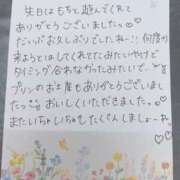 先日はもちっと遊んでくれて
ありがとうございましたっ。♡
だいぶお久しぶりでしたねー!! 何度か
来ようとはしてくれてたみたいやけど
タイミング合わなかったみたいで、
プリンのお土産もありがとうございました
おいしくいただきました。♡
またいちゃいちゃたくさんしましょーね。